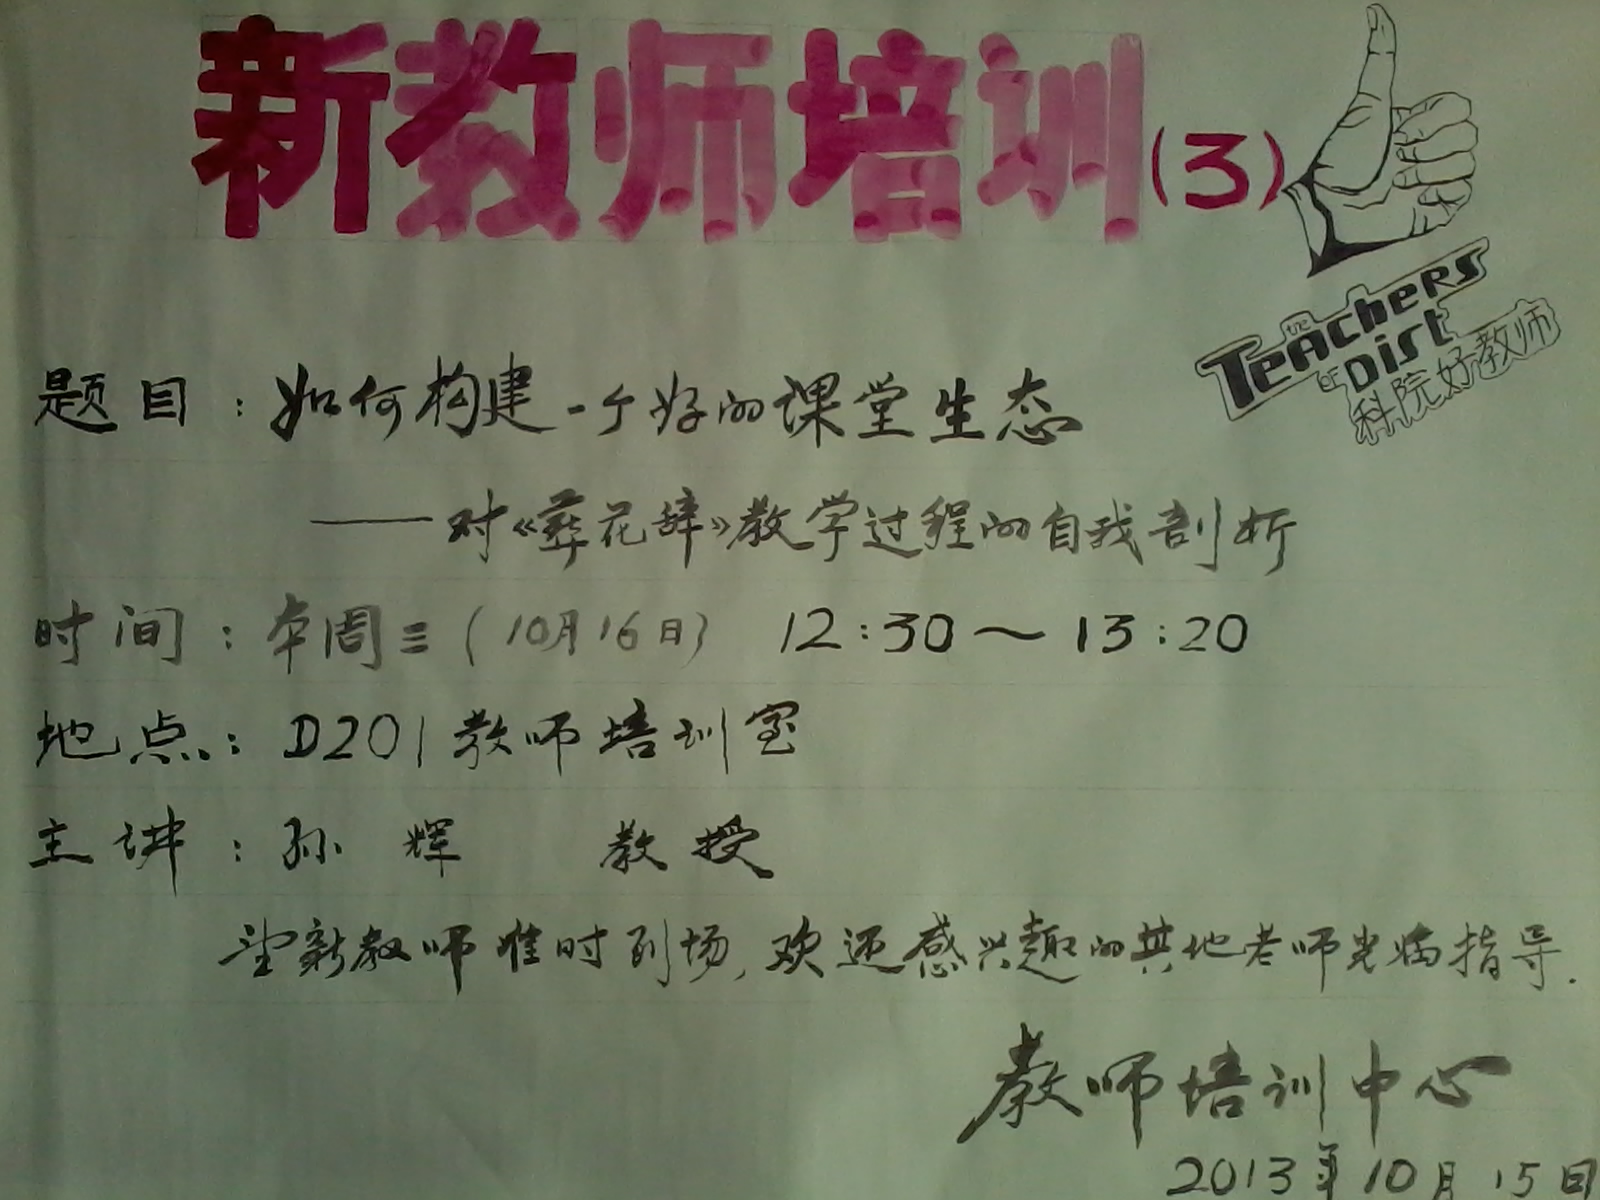 新教师培训(3)
The Teachers
of Dist
科院好教师
题目：如何构建一个好的课堂生态
——对《葬花辞》教学过程的自我剖析
时间：本周三(10月16日) 12:30～13:20
地点：D201教师培训室
主讲：孙辉 教授
望新教师准时到场,欢迎感兴趣的其他老师光临指导.
教师培训中心
2013年10月15日